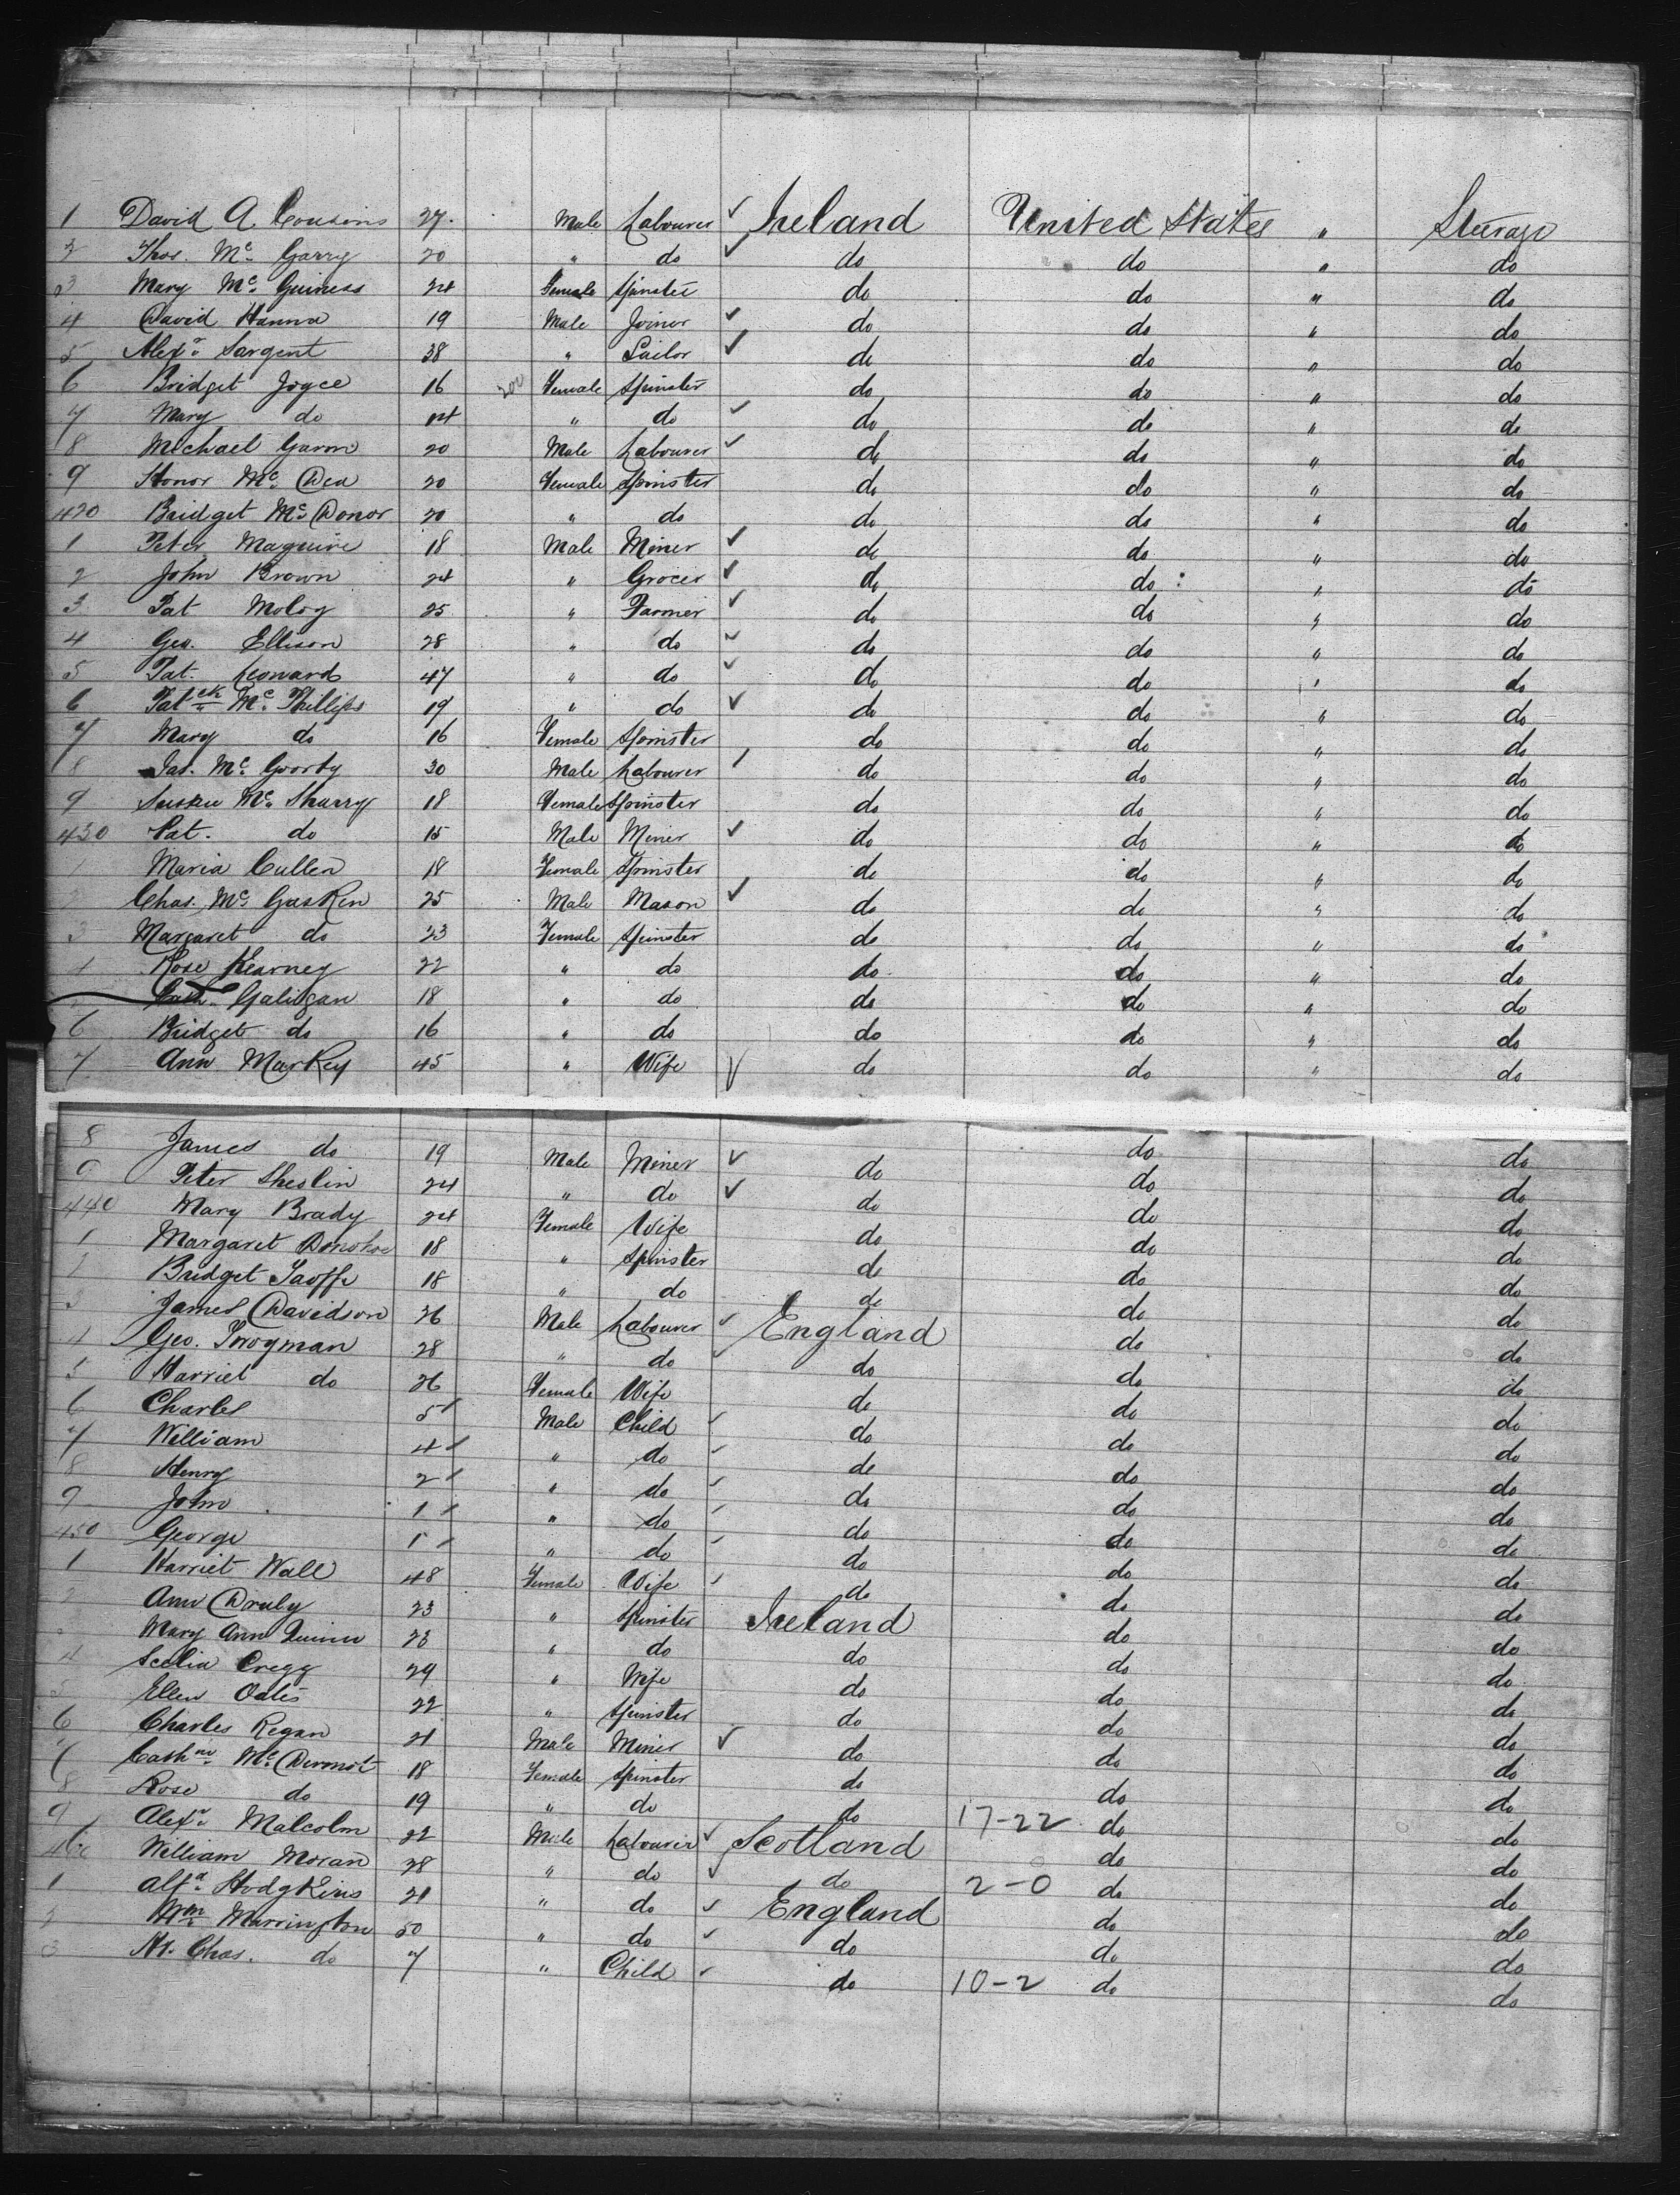 1 David A. Cousins 27 Male Labourer ✓ Ireland United States " Steerage
2 Thos. Mc Garry 20 " do ✓ do do " do
3 Mary Mc Guiness 24 Female Spinster do do " do
4 David Hanna 19 Male Joiner ✓ do do " do
5 Alexr Sargent 38 " Sailor ✓ do do " do
6 Bridget Joyce 16 200 Female Spinster do do " do
7 Mary do 14 " do ✓ do do " do
8 Michael Gavon 20 Male Labourer ✓ do do " do
9 Honor Mc Dea 20 Female Spinster do do " do
420 Bridget Mc Donor 20 " do do do " do
1 Peter Maguire 18 Male Miner ✓ do do " do
2 John Brown 24 " Grocer ✓ do do " do
3 Pat Moloy 25 " Farmer ✓ do do " do
4 Geo. Ellison 28 " do ✓ do do " do
5 Pat. Leonard 47 " do ✓ do do " do
6 Patck Mc Phillips 19 " do ✓ do do " do
7 Mary do 16 Female Spinster do do " do
8 Mc Goorty 30 Male Labourer ✓ do do " do
9 Mc Sharry 18 Female Spinster do do " do
430 Pat. do 15 Male Miner ✓ do do " do
1 Maria Cullen 18 Female Spinster do do " do
2 Chas. Mc Gasken 25 Male Mason ✓ do do " do
3 Margaret do 23 Female Spinster do do " do
4 Rose Kearney 22 " do do do " do
Cath. Galigan 18 " do do do " do
6 Bridget do 16 " do do do " do
7 Ann Markey 45 " Wife ✓ do do " do
8 James do 19 Male Miner ✓ do do do
9 Peter Sheslin 24 " do ✓ do do do
440 Mary Brady 24 Female Wife do do do
1 Margaret Donohoe 18 " Spinster do do do
2 Bridget Taoffe 18 " do do do do
3 James Davidson 26 Male Labourer ✓ England do do
4 Geo. Twogman 28 " do ✓ do do do
5 Harriet do 26 Female Wife do do do
6 Charles 5 ✓ Male Child ✓ do do do
7 William 4 ✓ " do ✓ do do do
8 Henry 2 ✓ " do ✓ do do do
9 John 1 ✓ " do ✓ do do do
450 George 1 ✓ " do ✓ do do do
1 Harriet Wall 48 Female Wife ✓ do do do
2 Ann Druly 23 " Spinster Ireland do do
Mary Ann Quinn 23 " do do do do
4 Scelia Cregg 29 " Wife do do do
5 Ellen Oates 22 " Spinster do do do
6 Charles Regan 21 Male Miner ✓ do do do
7 Cathne Mc Dermot 18 Female Spinster do do do
8 Rose do 19 " do do do do
9 Alexr Malcolm 22 Male Labourer ✓ Scotland 17-22 do do
460 William Moran 28 " do ✓ do do do
1 Alfd Hodgkins 21 " do ✓ England 2-0 do do
2 Wm Marrington 50 " do ✓ do do do
3 Chas. do 7 " Child ✓ do 10-2 do do